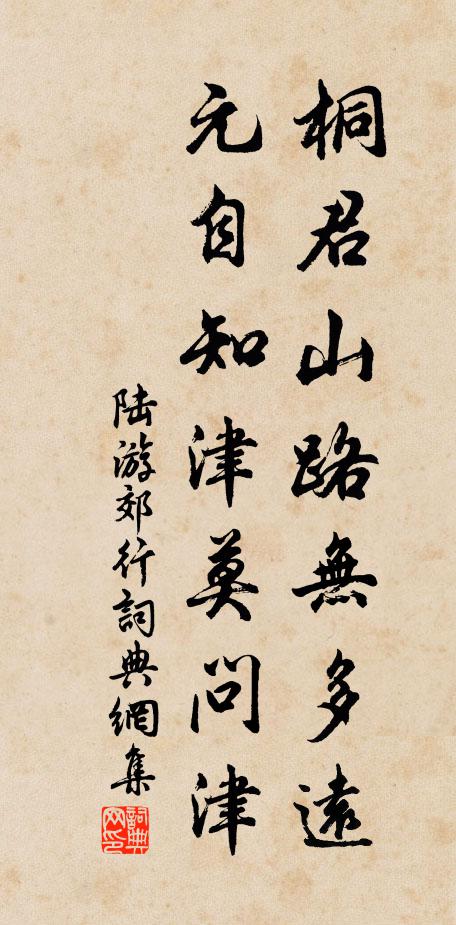 桐君山路無多遠
元自知津莫問津
陆游郊行詞典網集
詞典网印